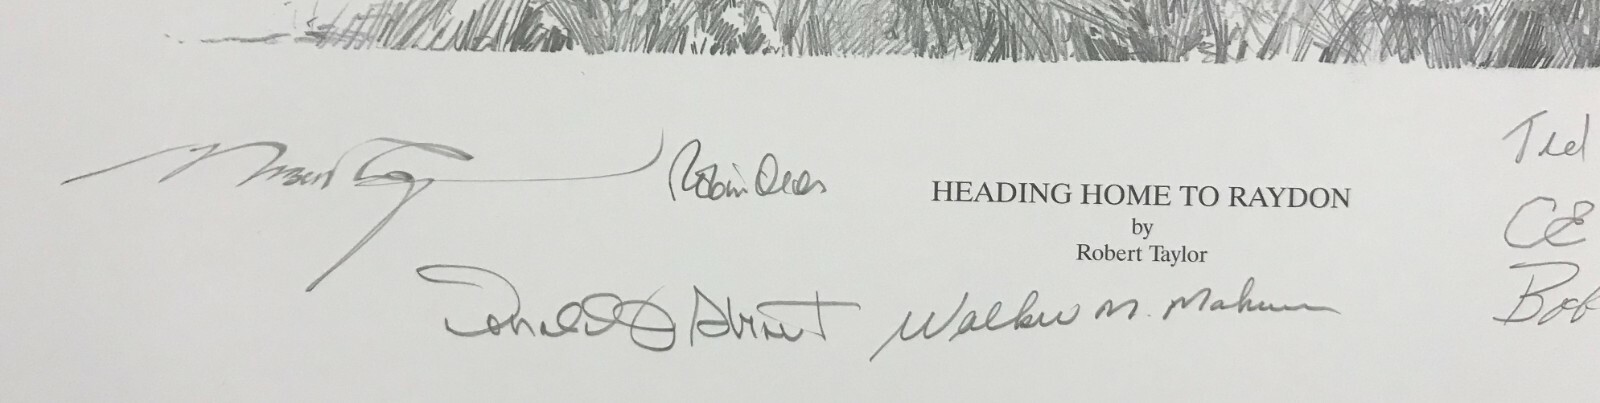 Robin Olds
HEADING HOME TO RAYDON
by
Robert Taylor
Donald J Strait
Walker M. Mahurin
Ted
CE
Bob